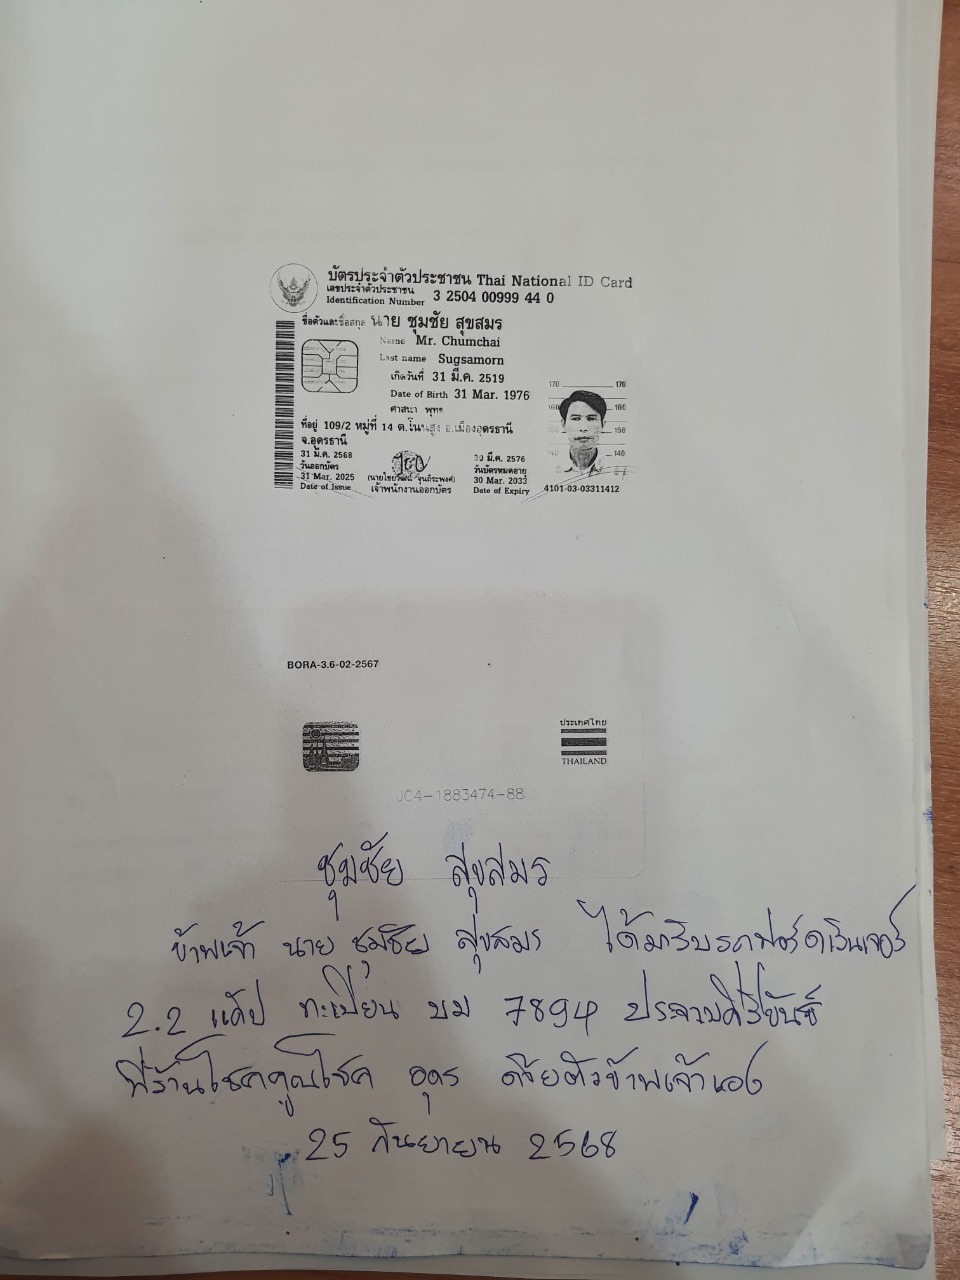 บัตรประจำตัวประชาชน Thai National ID Card
เลขประจำตัวประชาชน
Identification Number 3 2504 00999 44 0
ชื่อตัวและชื่อสกุล นาย ชุมชัย สุขสมร
Name Mr. Chumchai
Last name Sugsamorn
เกิดวันที่ 31 มี.ค. 2519
Date of Birth 31 Mar. 1976
ศาสนา พุทธ
ที่อยู่ 109/2 หมู่ที่ 14 ต.โนนสูง อ.เมืองอุดรธานี
จ.อุดรธานี
31 มี.ค. 2568
วันออกบัตร
31 Mar. 2025
Date of Issue
เจ้าพนักงานออกบัตร
30 มี.ค. 2576
วันบัตรหมดอายุ
30 Mar. 2033
Date of Expiry
170 170
160 160
150 150
140 140
4101-03-03311412
BORA-3.6-02-2567
ประเทศไทย
THAILAND
JC4-1883474-88
ชุมชัย สุขสมร
ข้าพเจ้า นาย ชุมชัย สุขสมร ได้มารับรถฟอร์ดเรนเจอร์
2.2 แค้ป ทะเบียน บม 7894 ประจวบคีรีขันธ์
ที่ร้านโชคคูณโชค อุดร ด้วยตัวข้าพเจ้าเอง
25 กันยายน 2568